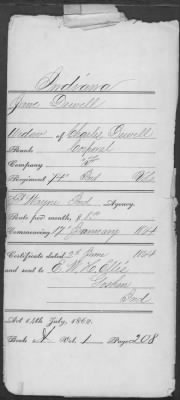 Indiana
Jane Dewell
Widow of Charles Dewell
Rank Corporal
Company
Regiment 74" Ind Vols
Ft Wayne Ind Agency.
Rate per month, $ 8.00
Commencing 17" January 1864
Certificate dated 2d June 1864
and sent to E. W. H. Ellis
Goshen
Ind
Act 14th July, 1862.
Book Vol. 1 Page 208